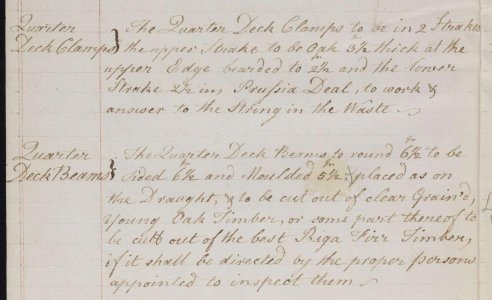 Quarter Deck Clamps } The Quarter Deck Clamps to be in 2 Strakes
the upper Strake to be Oak 3½ thick at the
upper Edge bearded to 2½ and the lower
Strake 2½ ins Prussia Deal, to work &
answer to the String in the Waste.
Quarter Deck Beams } The Quarter Deck Beams to round 6½ to be
Sided 6½ and Moulded 5½ placed as on
the Draught, & to be cut out of clear Grain'd,
Young Oak Timber, or some part thereof to
be cutt out of the best Riga Firr Timber,
if it shall be directed by the proper persons
appointed to inspect them.